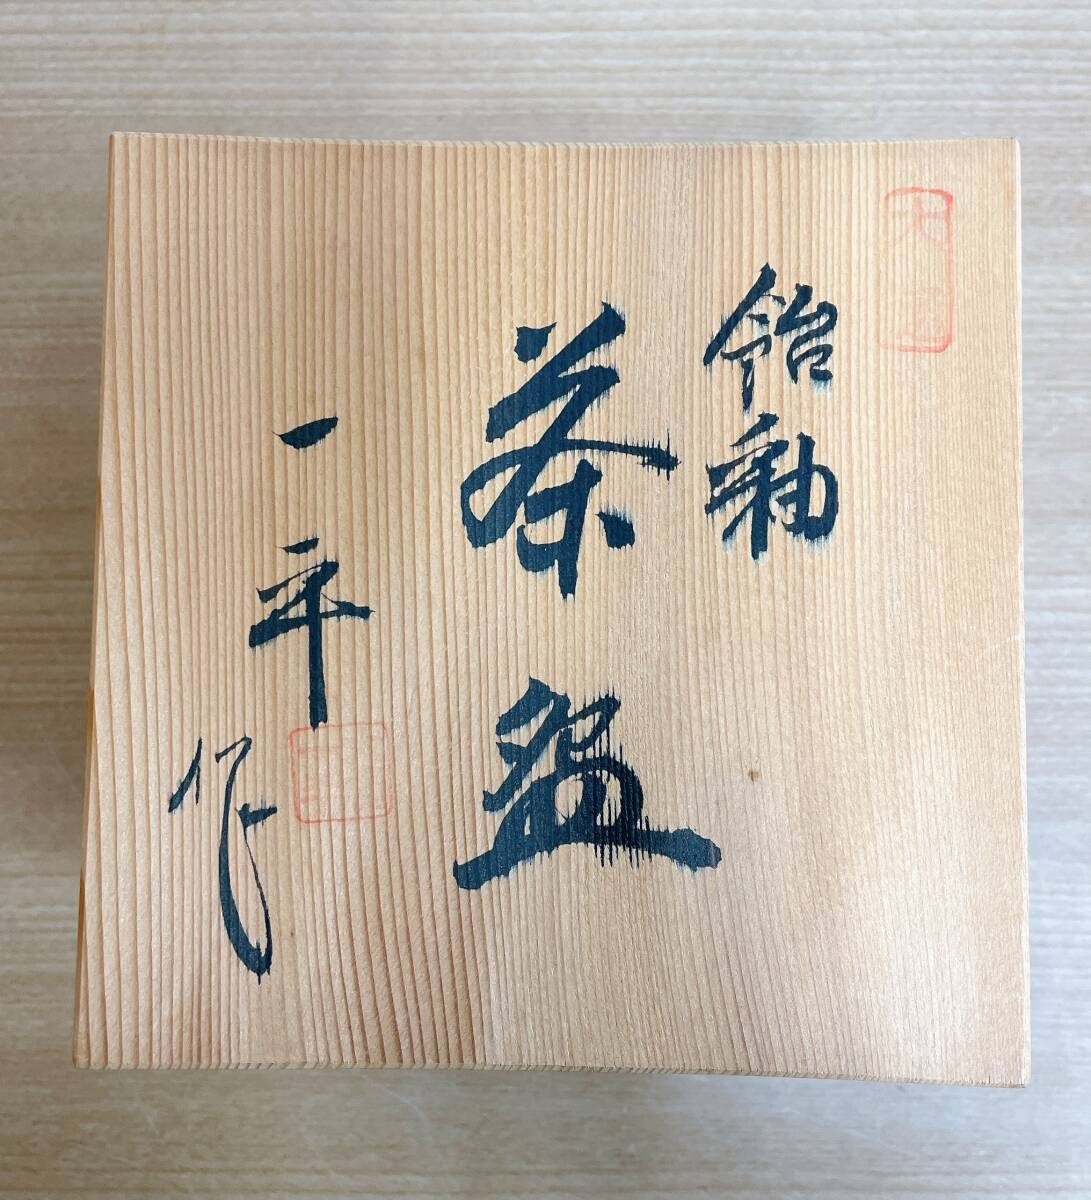 飴釉
茶盌
一平作